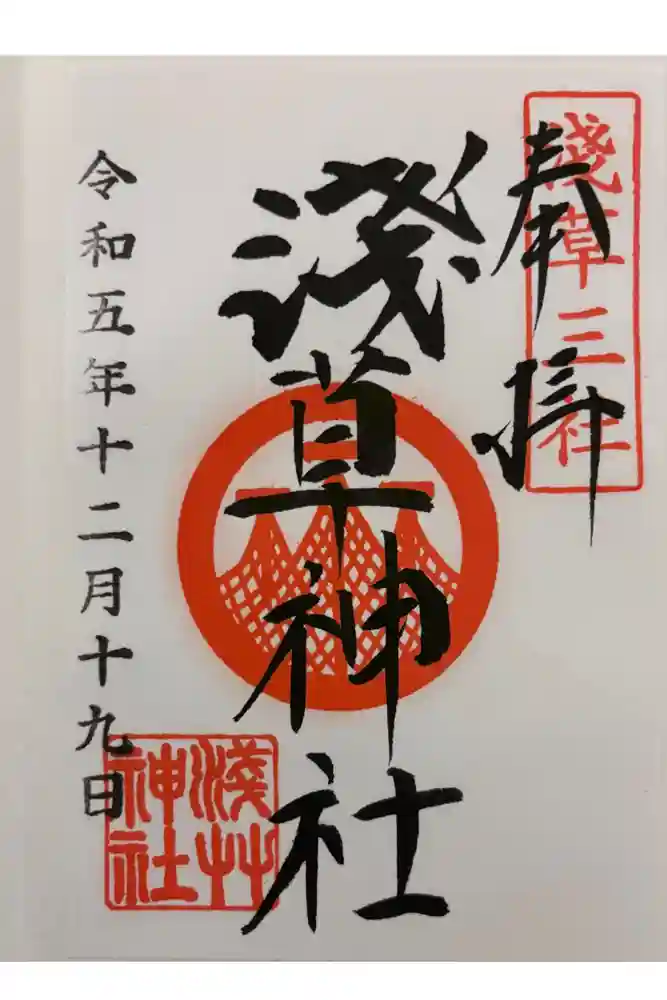 奉拝
淺草三社
淺草神社
淺艸神社
令和五年十二月十九日